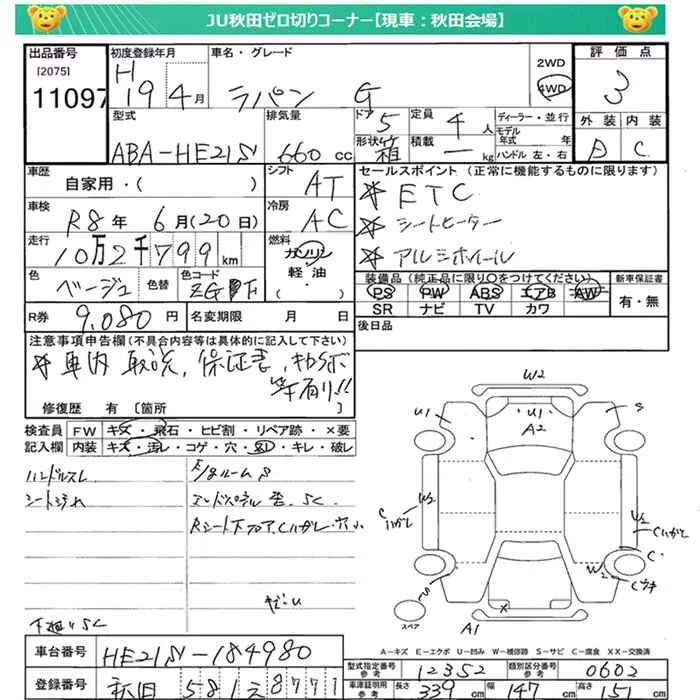 JU秋田ゼロ切りコーナー【現車：秋田会場】
出品番号
[2075]
11097
初度登録年月
H 19 4月
車名・グレード
ラパン G
2WD
4WD
評価点
3
外装 内装
D C
型式
ABA-HE21S
排気量
660 cc
ドア
5
形状
箱
定員
4 人
積載
― kg
ディーラー・並行
モデル
年式 年
ハンドル 左・右
車歴
自家用・( )
シフト
AT
車検
R8年 6月(20日)
冷房
AC
走行
10万2千799km
燃料
ガソリン
軽・油
・( )
色
ベージュ
色替
色コード
R券
9,080 円
名変期限 月 日
セールスポイント (正常に機能するものに限ります)
☆ ETC
☆ シートヒーター
☆ アルミホイール
装備品(純正品に限り○をつけてください)
PS PW ABS エアB AW
SR ナビ TV カワ
新車保証書
有・無
後日品
注意事項申告欄(不具合内容等は具体的に記入して下さい)
☆ 車内 取説, 保証書,
等有り!!
修復歴 有 [箇所 ]
検査員
記入欄
FW キズ・飛石・ヒビ割・リペア跡・×要
内装 キズ・汚レ・コゲ・穴・・キレ・破レ
ハンドルスレ
シート汚れ
下廻りSC
W2
U1
U1
A2
S
W2
S
A1
スペア
A-キズ E-エクボ U-凹み W-補修跡 S-サビ C-腐食 XX-交換済
車台番号
HE21S-184980
登録番号
秋田 581 え 8771
型式指定番号
参考
12352
類別区分番号
参考
0602
車庫証明用
参考
長さ 339 cm
幅 147 cm
高さ 151 cm